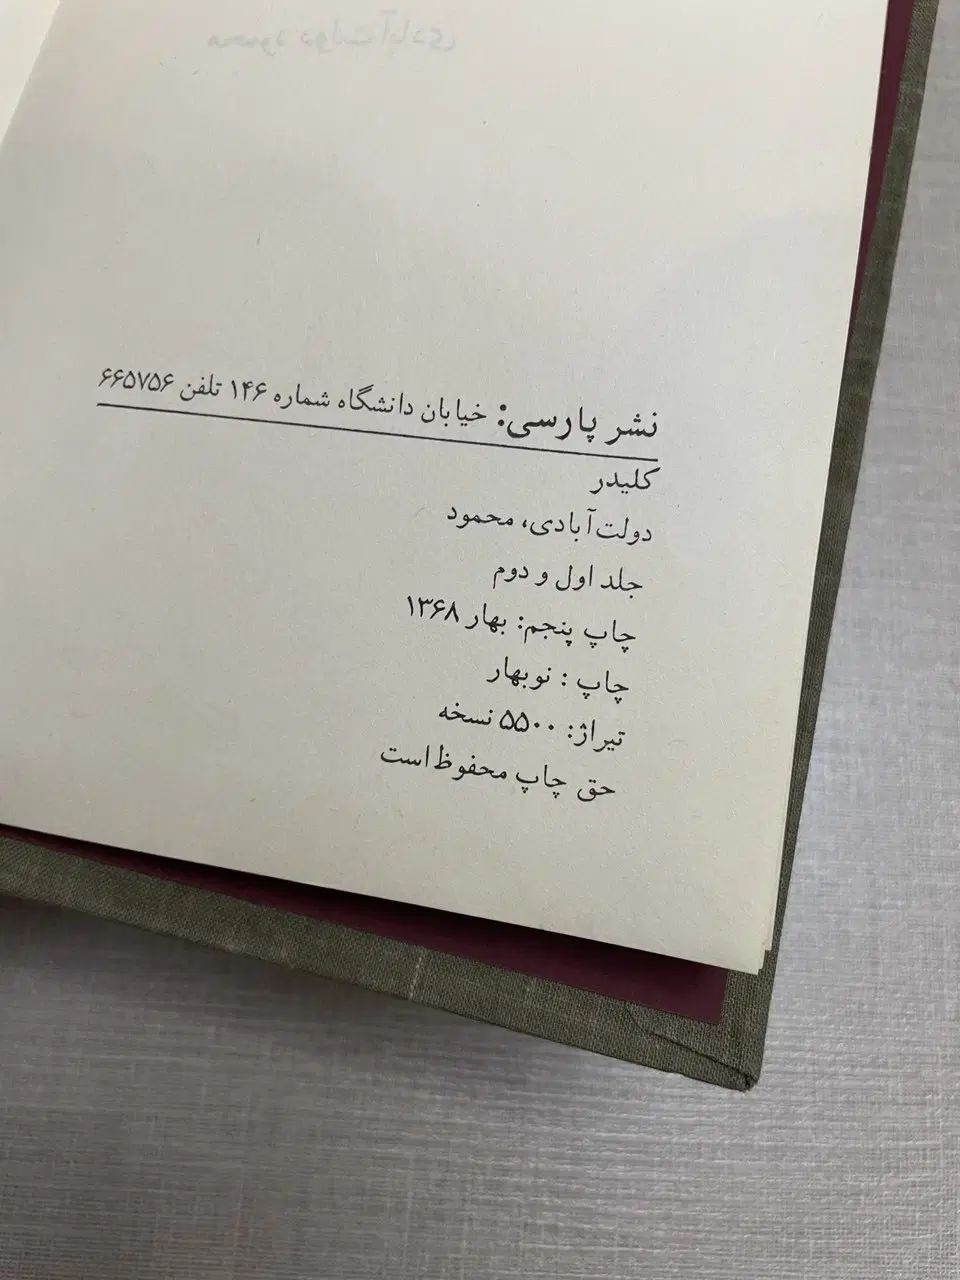 محمود دولت‌آبادی
نشر پارسی: خیابان دانشگاه شماره ۱۴۶ تلفن ۶۶۵۷۵۶
کلیدر
دولت‌آبادی، محمود
جلد اول و دوم
چاپ پنجم: بهار ۱۳۶۸
چاپ : نوبهار
تیراژ: ۵۵۰۰ نسخه
حق چاپ محفوظ است